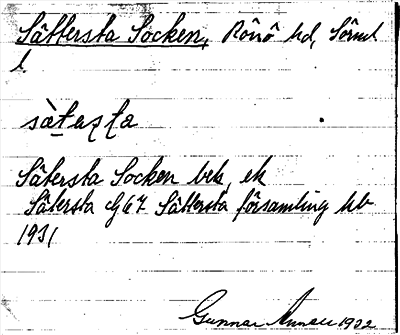 Sättersta Socken, Rönö hd, Sörml
l.
sàtaṣṭa
Sätersta Socken bek, ek
Sätersta Gg67 Sättersta församling kb
1931
Gunnar 1932